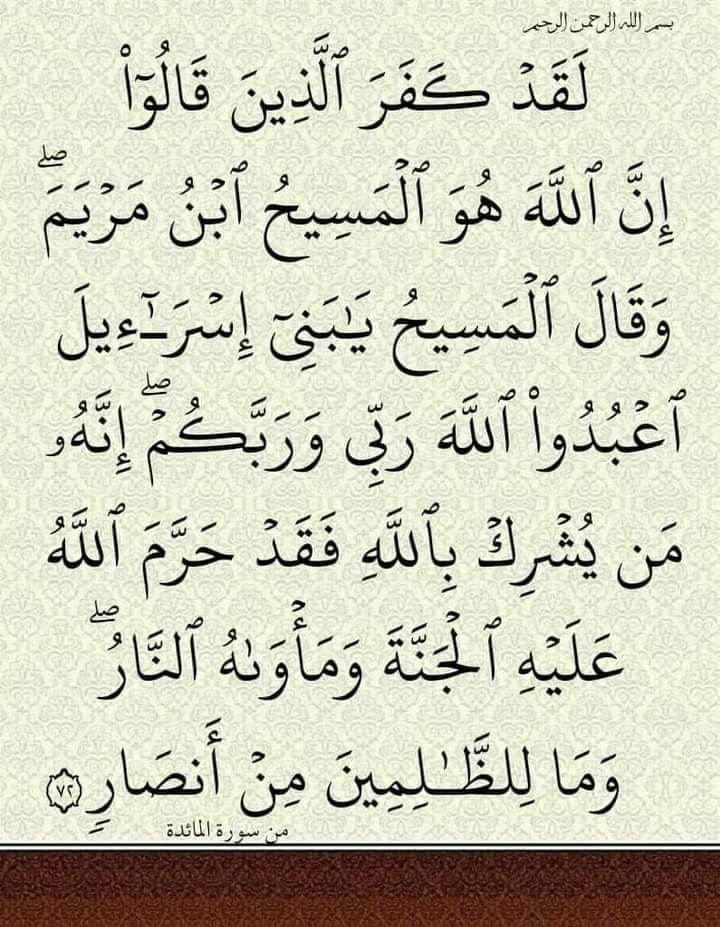 بسم الله الرحمن الرحيم
لَقَدۡ كَفَرَ ٱلَّذِينَ قَالُوٓاْ
إِنَّ ٱللَّهَ هُوَ ٱلۡمَسِيحُ ٱبۡنُ مَرۡيَمَۖ
وَقَالَ ٱلۡمَسِيحُ يَٰبَنِيٓ إِسۡرَـٰٓءِيلَ
ٱعۡبُدُواْ ٱللَّهَ رَبِّي وَرَبَّكُمۡۖ إِنَّهُۥ
مَن يُشۡرِكۡ بِٱللَّهِ فَقَدۡ حَرَّمَ ٱللَّهُ
عَلَيۡهِ ٱلۡجَنَّةَ وَمَأۡوَىٰهُ ٱلنَّارُۖ
وَمَا لِلظَّـٰلِمِينَ مِنۡ أَنصَارٖ ٧٢
من سورة المائدة